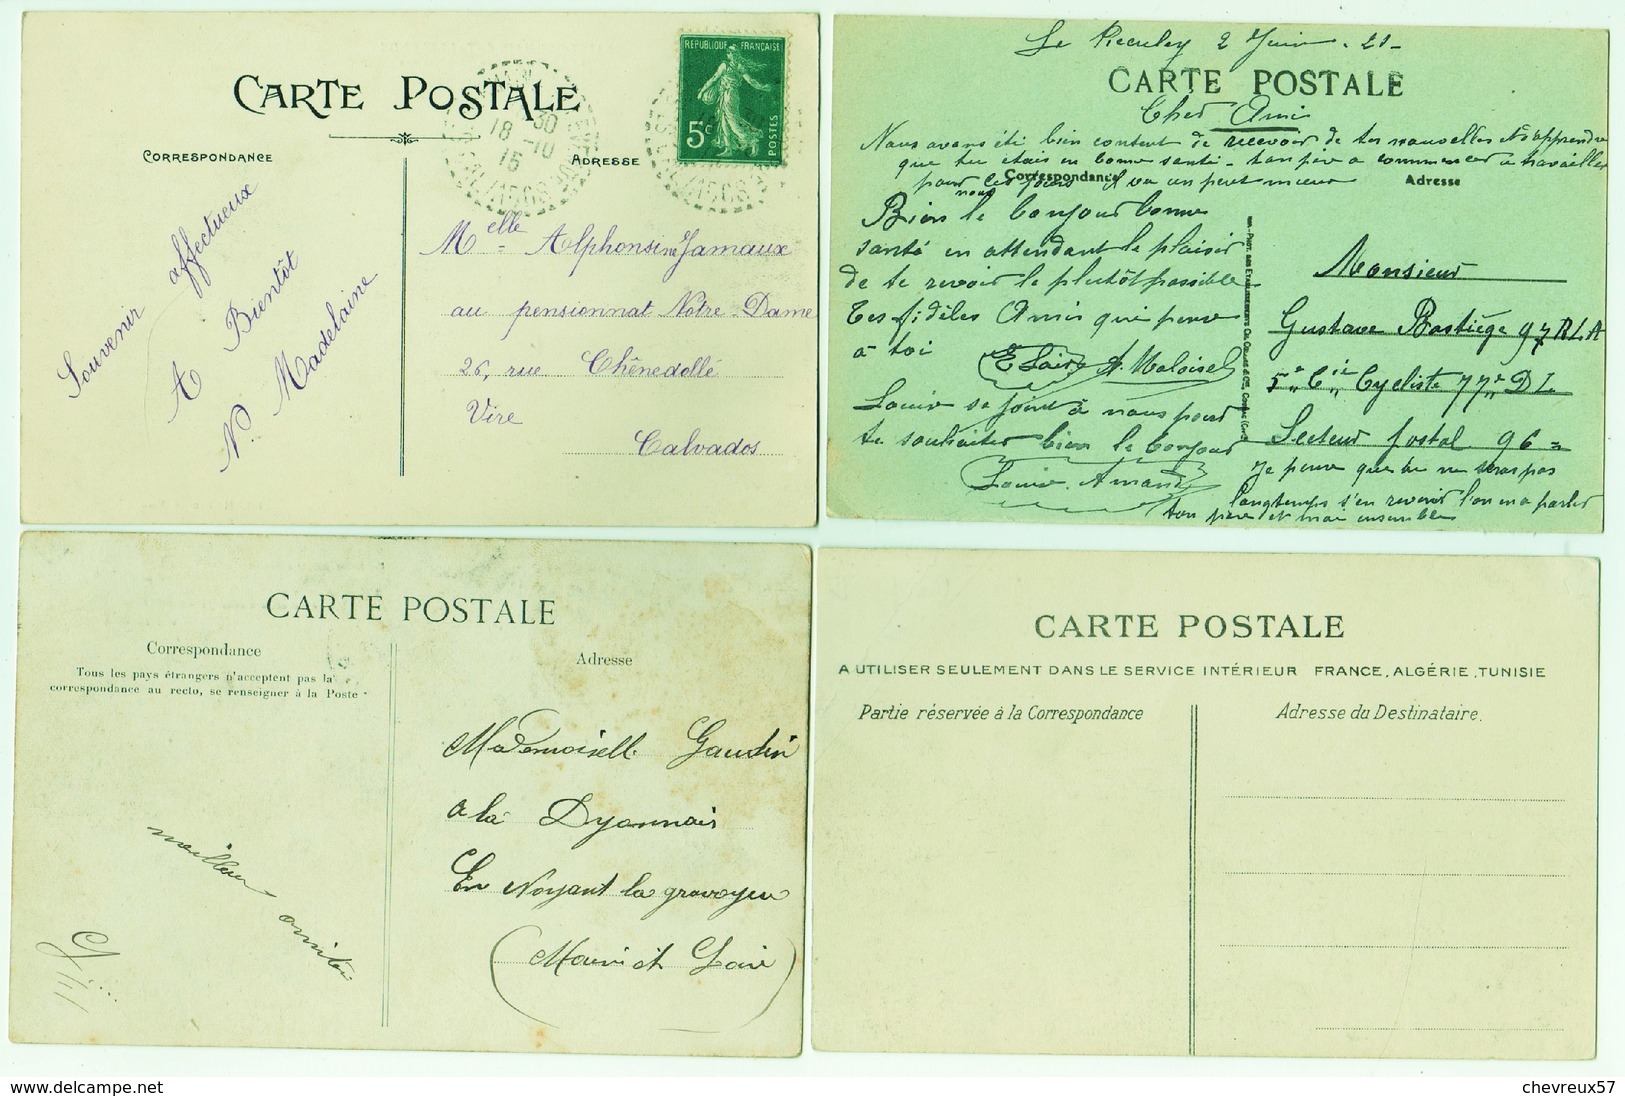 CARTE POSTALE
CORRESPONDANCE
ADRESSE
REPUBLIQUE FRANÇAISE
5c
POSTES
18 -10
15
Souvenir affectueux
A Bientôt
N. Madelaine
Melle Alphonsine Jamaux
au pensionnat Notre-Dame
26, rue Chênedollé
Vire
Calvados
2 Juin . 21-
CARTE POSTALE
Cher Ami
Nous avons été bien content de recevoir de tes nouvelles et d'apprendre
que tu étais en bonne santé - ton père a commencer a travailler
pour ces jours il va un peut mieux
Correspondance
Adresse
nous
Bien le bonjour bonne
santé en attendant le plaisir
de te revoir le plutôt possible
Tes fidèles Amis qui pense
à toi
Louis se joint à nous pour
te souhaiter bien le bonjour
Louis Amand
Monsieur
Gustave Bastiége 97 R.I.A
5e Cie Cycliste 77e D I.
Secteur postal 96 =
Je pense que tu ne seras pas
longtemps s'en revenir l'on en a parler
ton père et moi ensemble
CARTE POSTALE
Correspondance
Tous les pays étrangers n'acceptent pas la
correspondance au recto, se renseigner à la Poste
Adresse
Mademoiselle Gaudin
a la Dyonnais
En Noyant la gravoyere
(Maine et Loire)
meilleure amitiée
CARTE POSTALE
A UTILISER SEULEMENT DANS LE SERVICE INTÉRIEUR FRANCE, ALGÉRIE, TUNISIE
Partie réservée à la Correspondance
Adresse du Destinataire.
www.delcampe.net
chevreux57